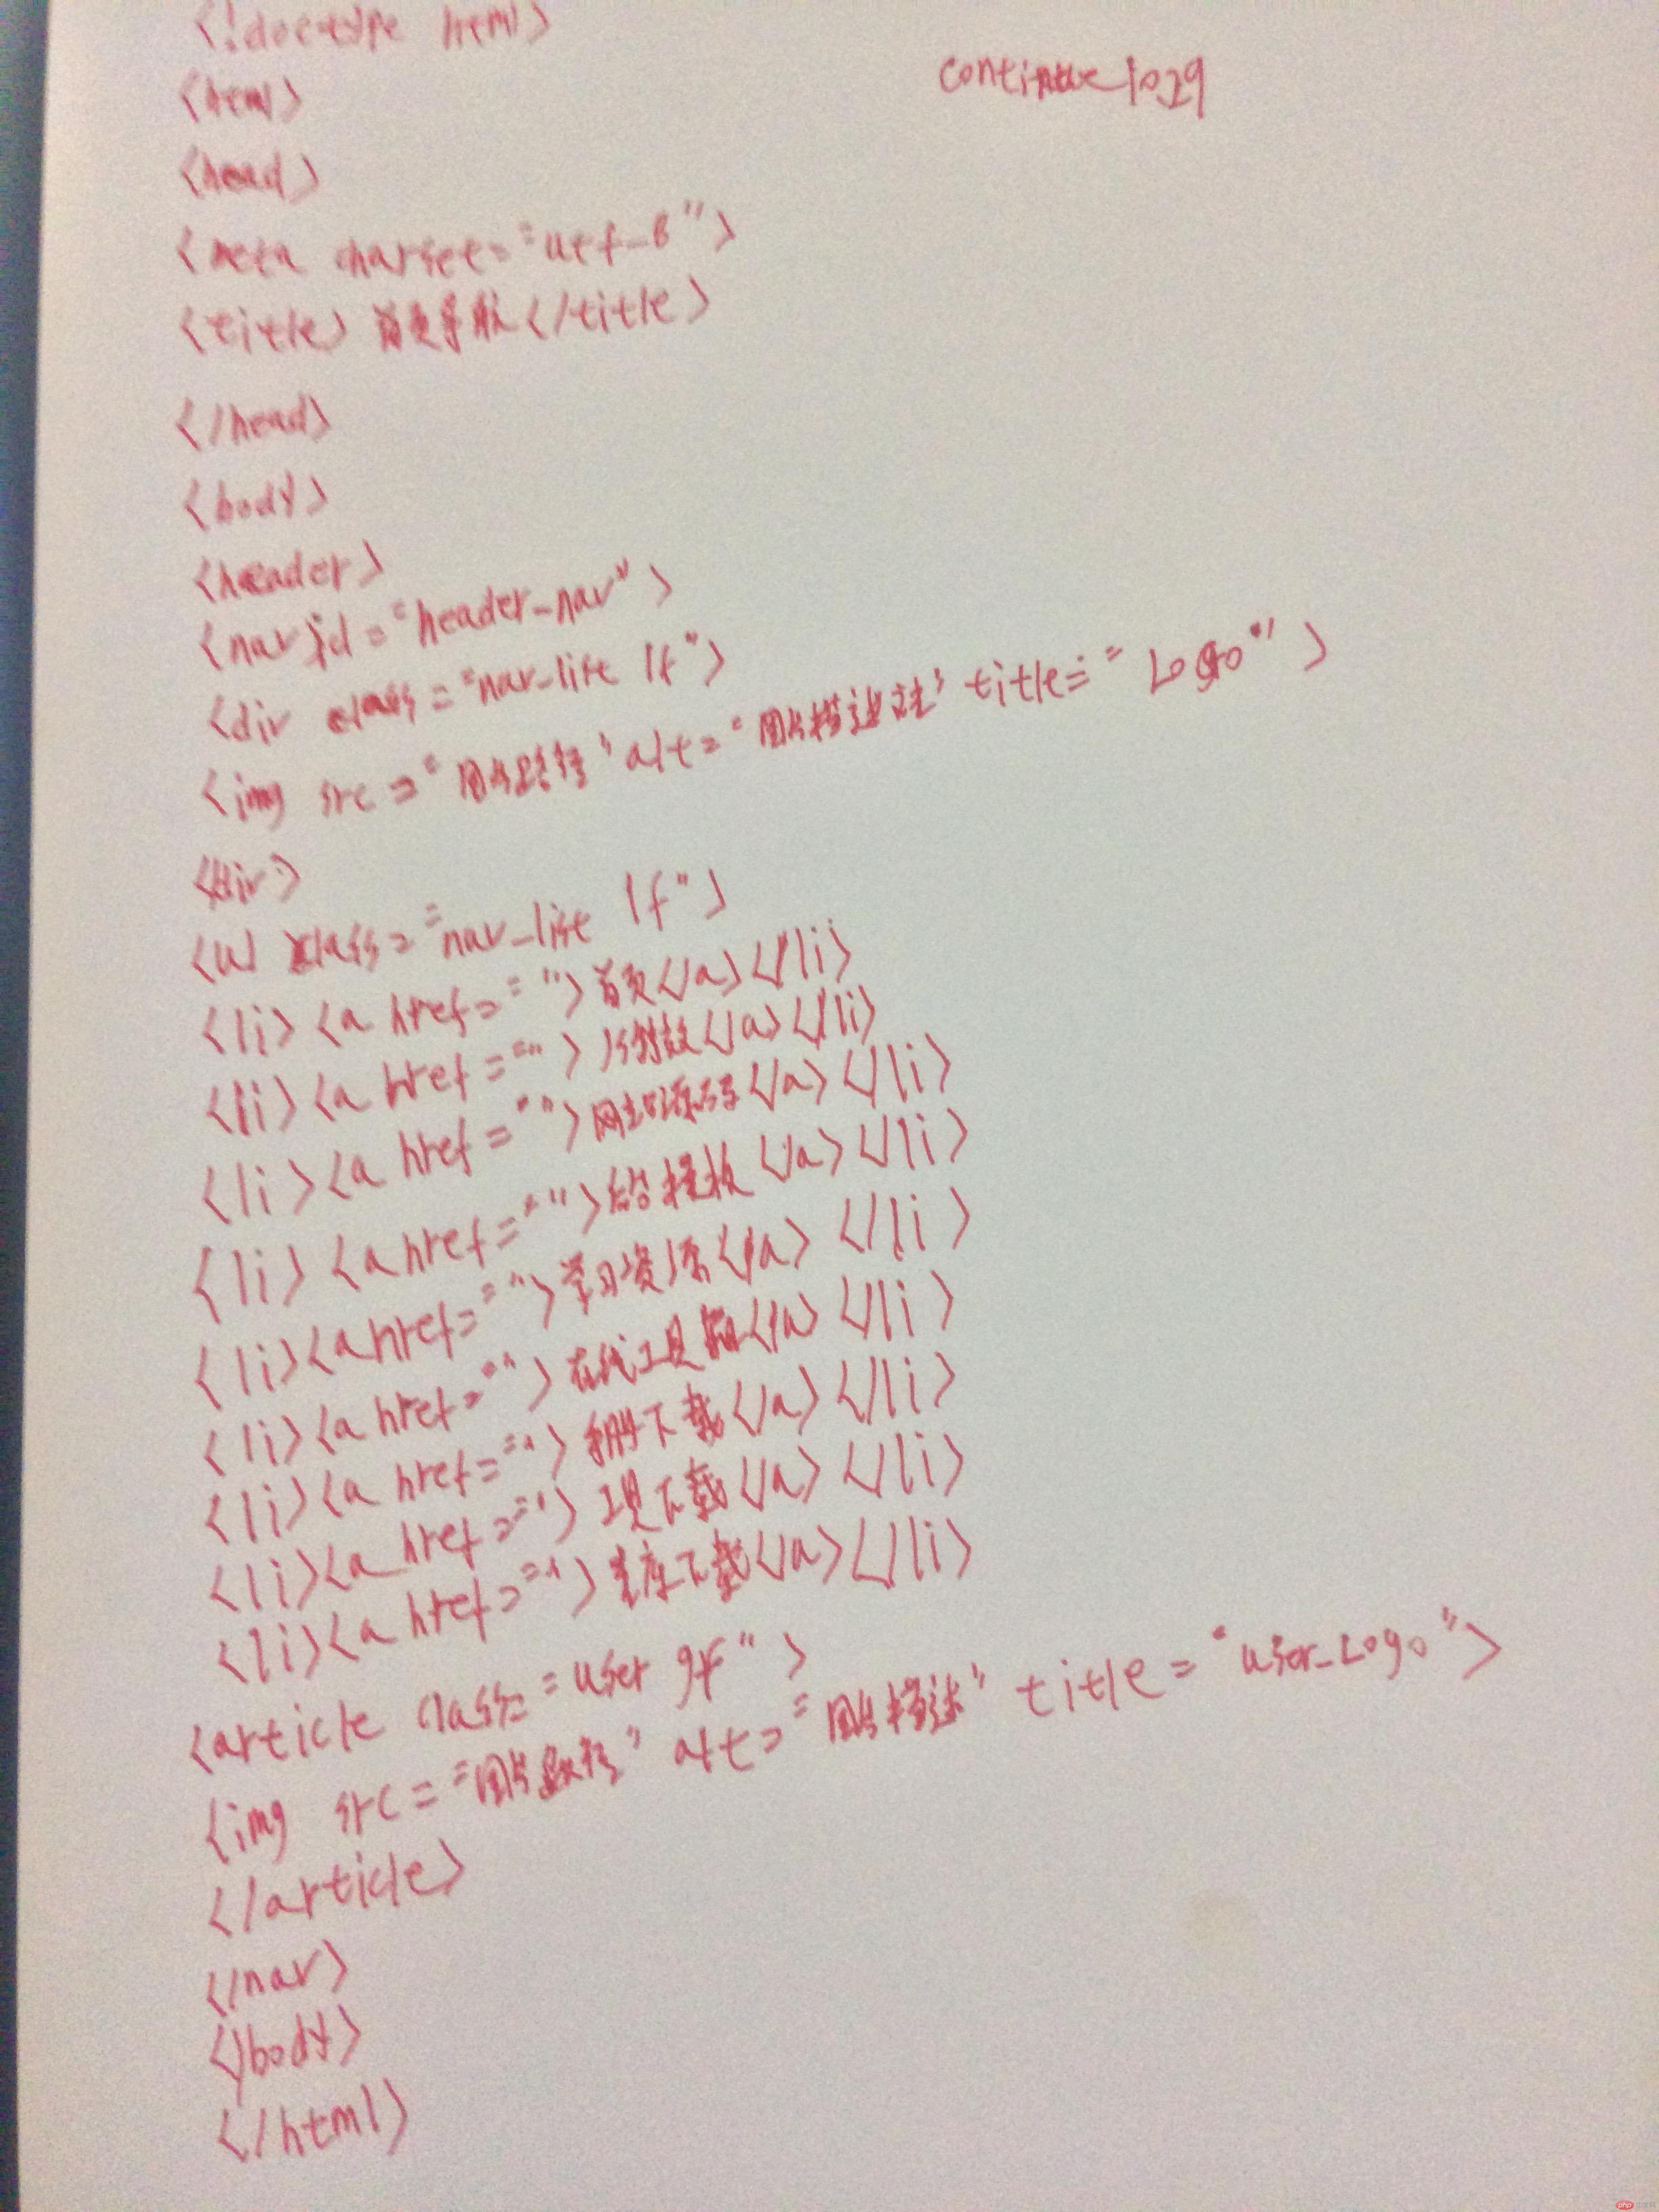 <!doctype html>
continue 1029
<html>
<head>
<meta charset="utf-8">
<title>首页导航</title>
</head>
<body>
<header>
<nav id="header-nav">
<div class="nav-list lf">
<img src="图片路径" alt="图片描述" title="Logo">
</div>
<ul class="nav-list lf">
<li><a href="">首页</a></li>
<li><a href="">特效</a></li>
<li><a href="">网站源码</a></li>
<li><a href="">模板</a></li>
<li><a href="">学习资源</a></li>
<li><a href="">在线工具</a></li>
<li><a href="">手册下载</a></li>
<li><a href="">工具下载</a></li>
<li><a href="">类库下载</a></li>
<article class="user gf">
<img src="图片路径" alt="图片描述" title="user-Logo">
</article>
</nav>
</body>
</html>
php